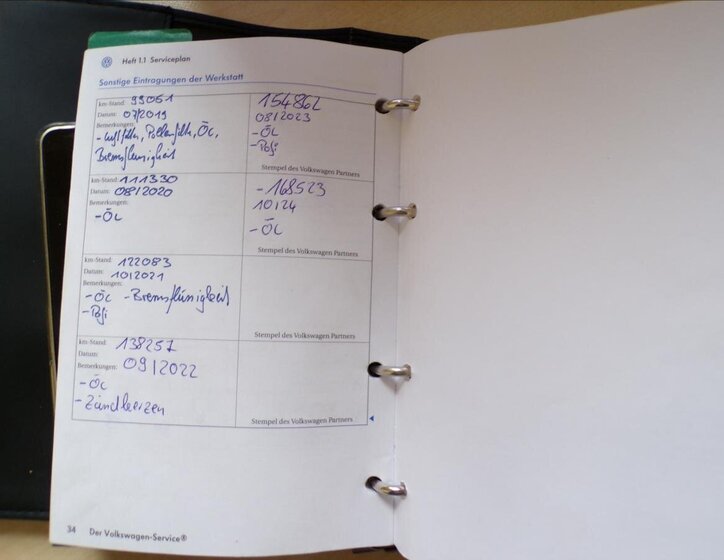 Heft 1.1 Serviceplan
Sonstige Eintragungen der Werkstatt
km-Stand: 99051
Datum: 07/2019
Bemerkungen:
- Luftfilter, Pollenfilter, Öl,
Bremsflüssigkeit
154862
08/2023
- Öl
- Pofi
Stempel des Volkswagen Partners
km-Stand: 111330
Datum: 08/2020
Bemerkungen:
- Öl
- 168523
10/24
- Öl
Stempel des Volkswagen Partners
km-Stand: 122083
Datum: 10/2021
Bemerkungen:
- Öl - Bremsflüssigkeit
- Pofi
Stempel des Volkswagen Partners
km-Stand: 138257
Datum:
Bemerkungen: 09/2022
- Öl
- Zündkerzen
Stempel des Volkswagen Partners
34 Der Volkswagen-Service®